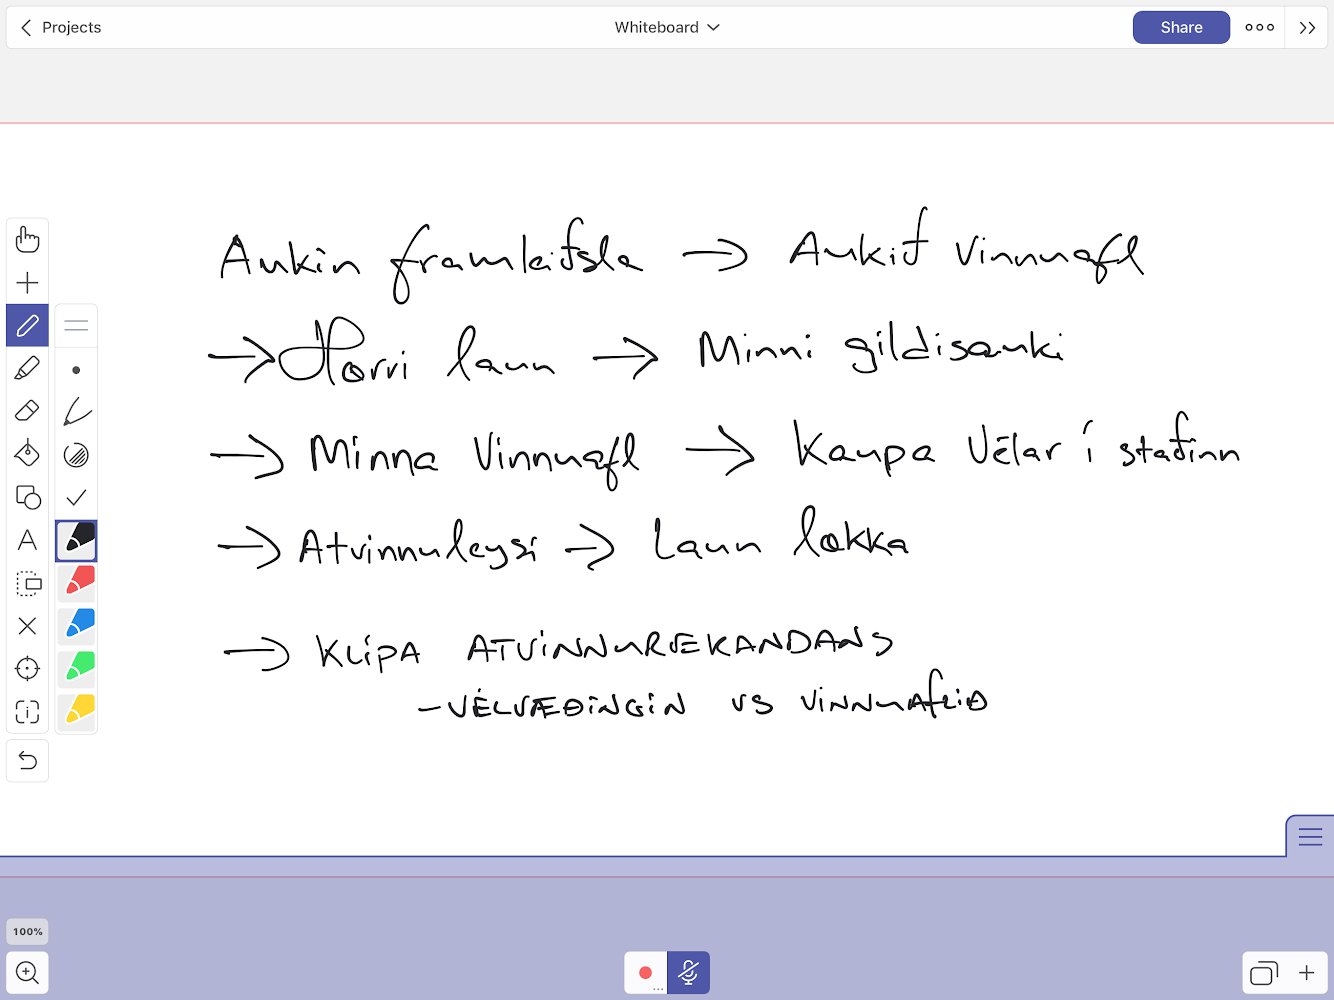 Projects
Whiteboard
Share
Aukin framleiðsla → Aukið vinnuafl
→ Hærri laun → Minni gildisauki
→ Minna vinnuafl → Kaupa vélar í staðinn
→ Atvinnuleysi → Laun lækka
→ KLÍPA ATVINNUREKANDANS
- VÉLVÆÐINGIN VS VINNUAFLIÐ
A
100%